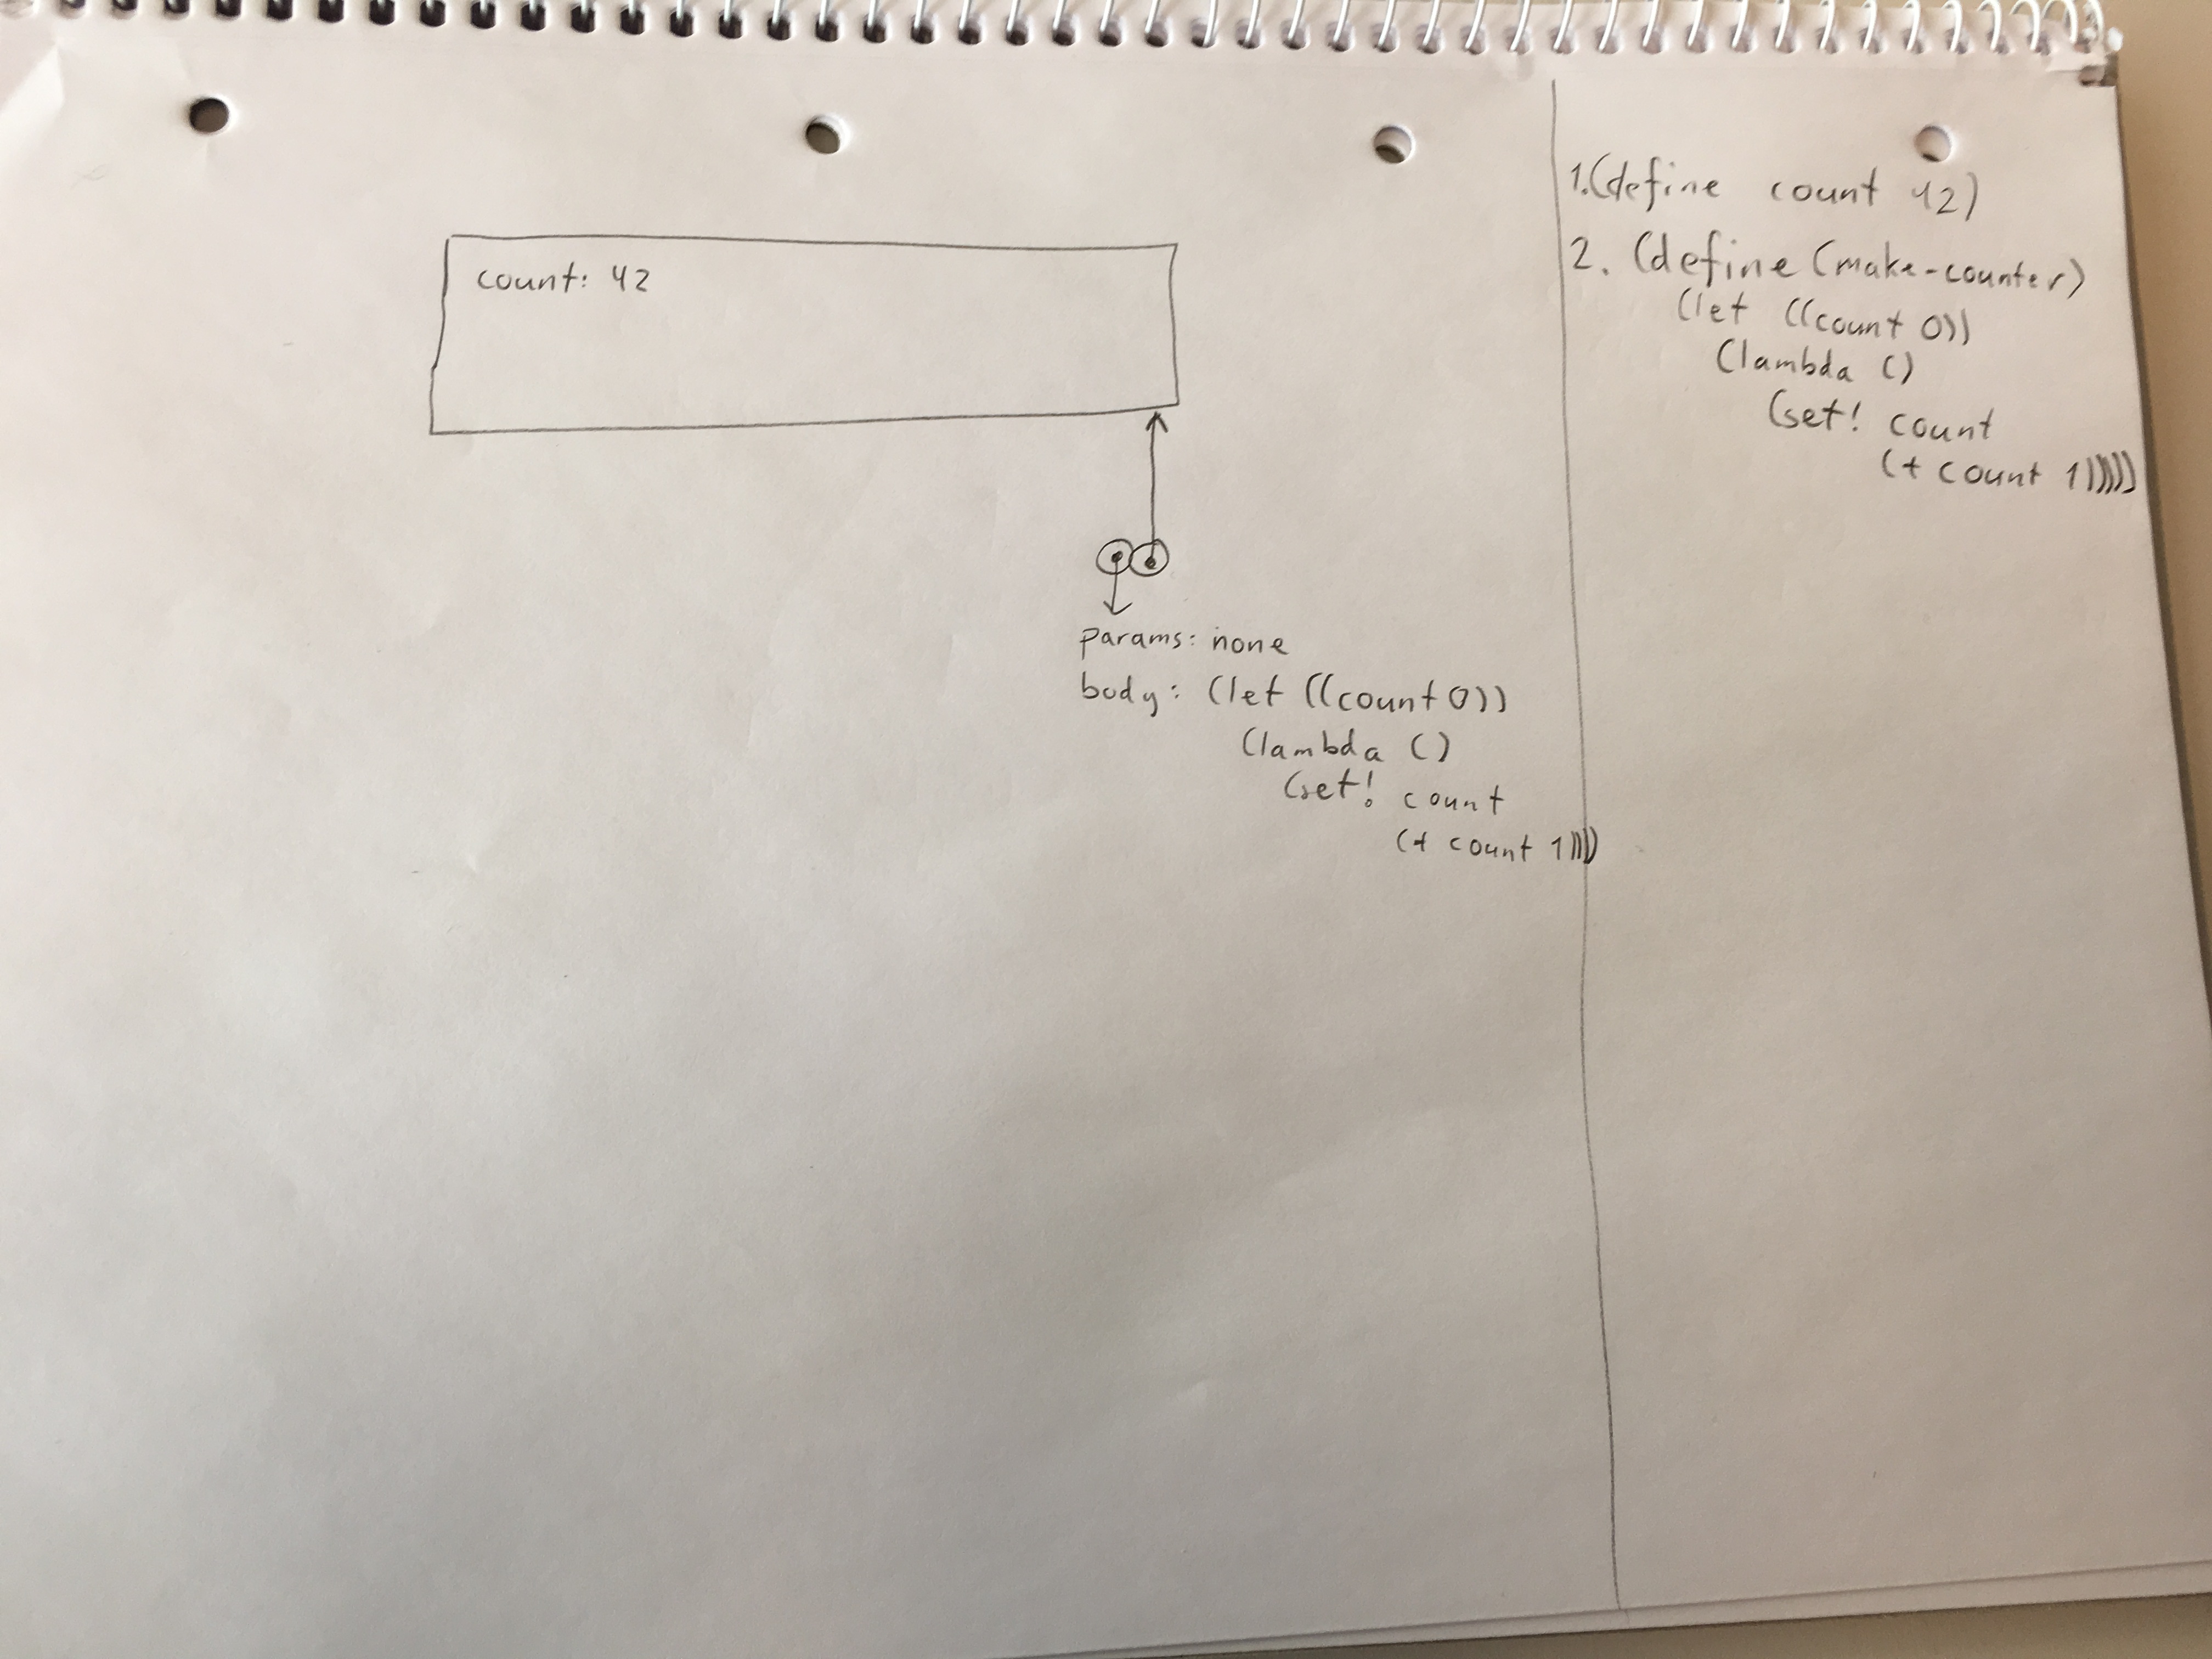 count: 42
params: none
body: (let ((count 0))
(lambda ()
(set! count
(+ count 1))))
1.(define count 42)
2. (define (make-counter)
(let ((count 0))
(lambda ()
(set! count
(+ count 1)))))